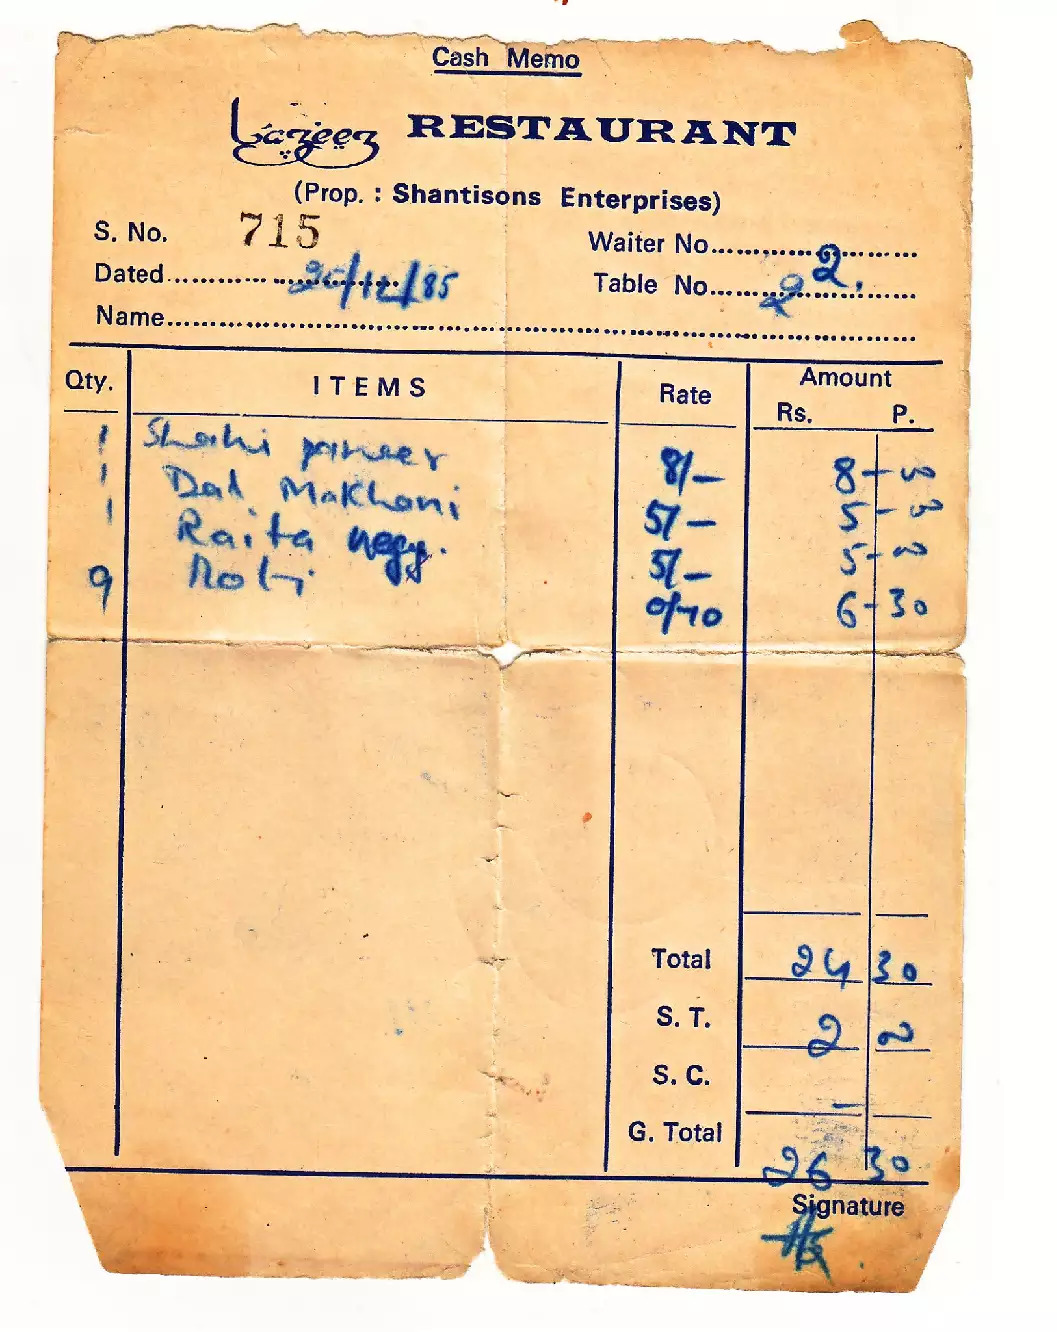 Cash Memo
Lazeez RESTAURANT
(Prop. : Shantisons Enterprises)
S. No. 715
Waiter No. 2
Dated 20/12/85
Table No. 2
Name
Qty. ITEMS Rate Amount
Rs. P.
1 Shahi paneer 8/- 8-00
1 Dal Makhani 5/- 5-00
1 Raita 5/- 5-00
9 Roti 0/70 6-30
Total 24 30
S. T. 2 00
S. C. -
G. Total 26 30
Signature